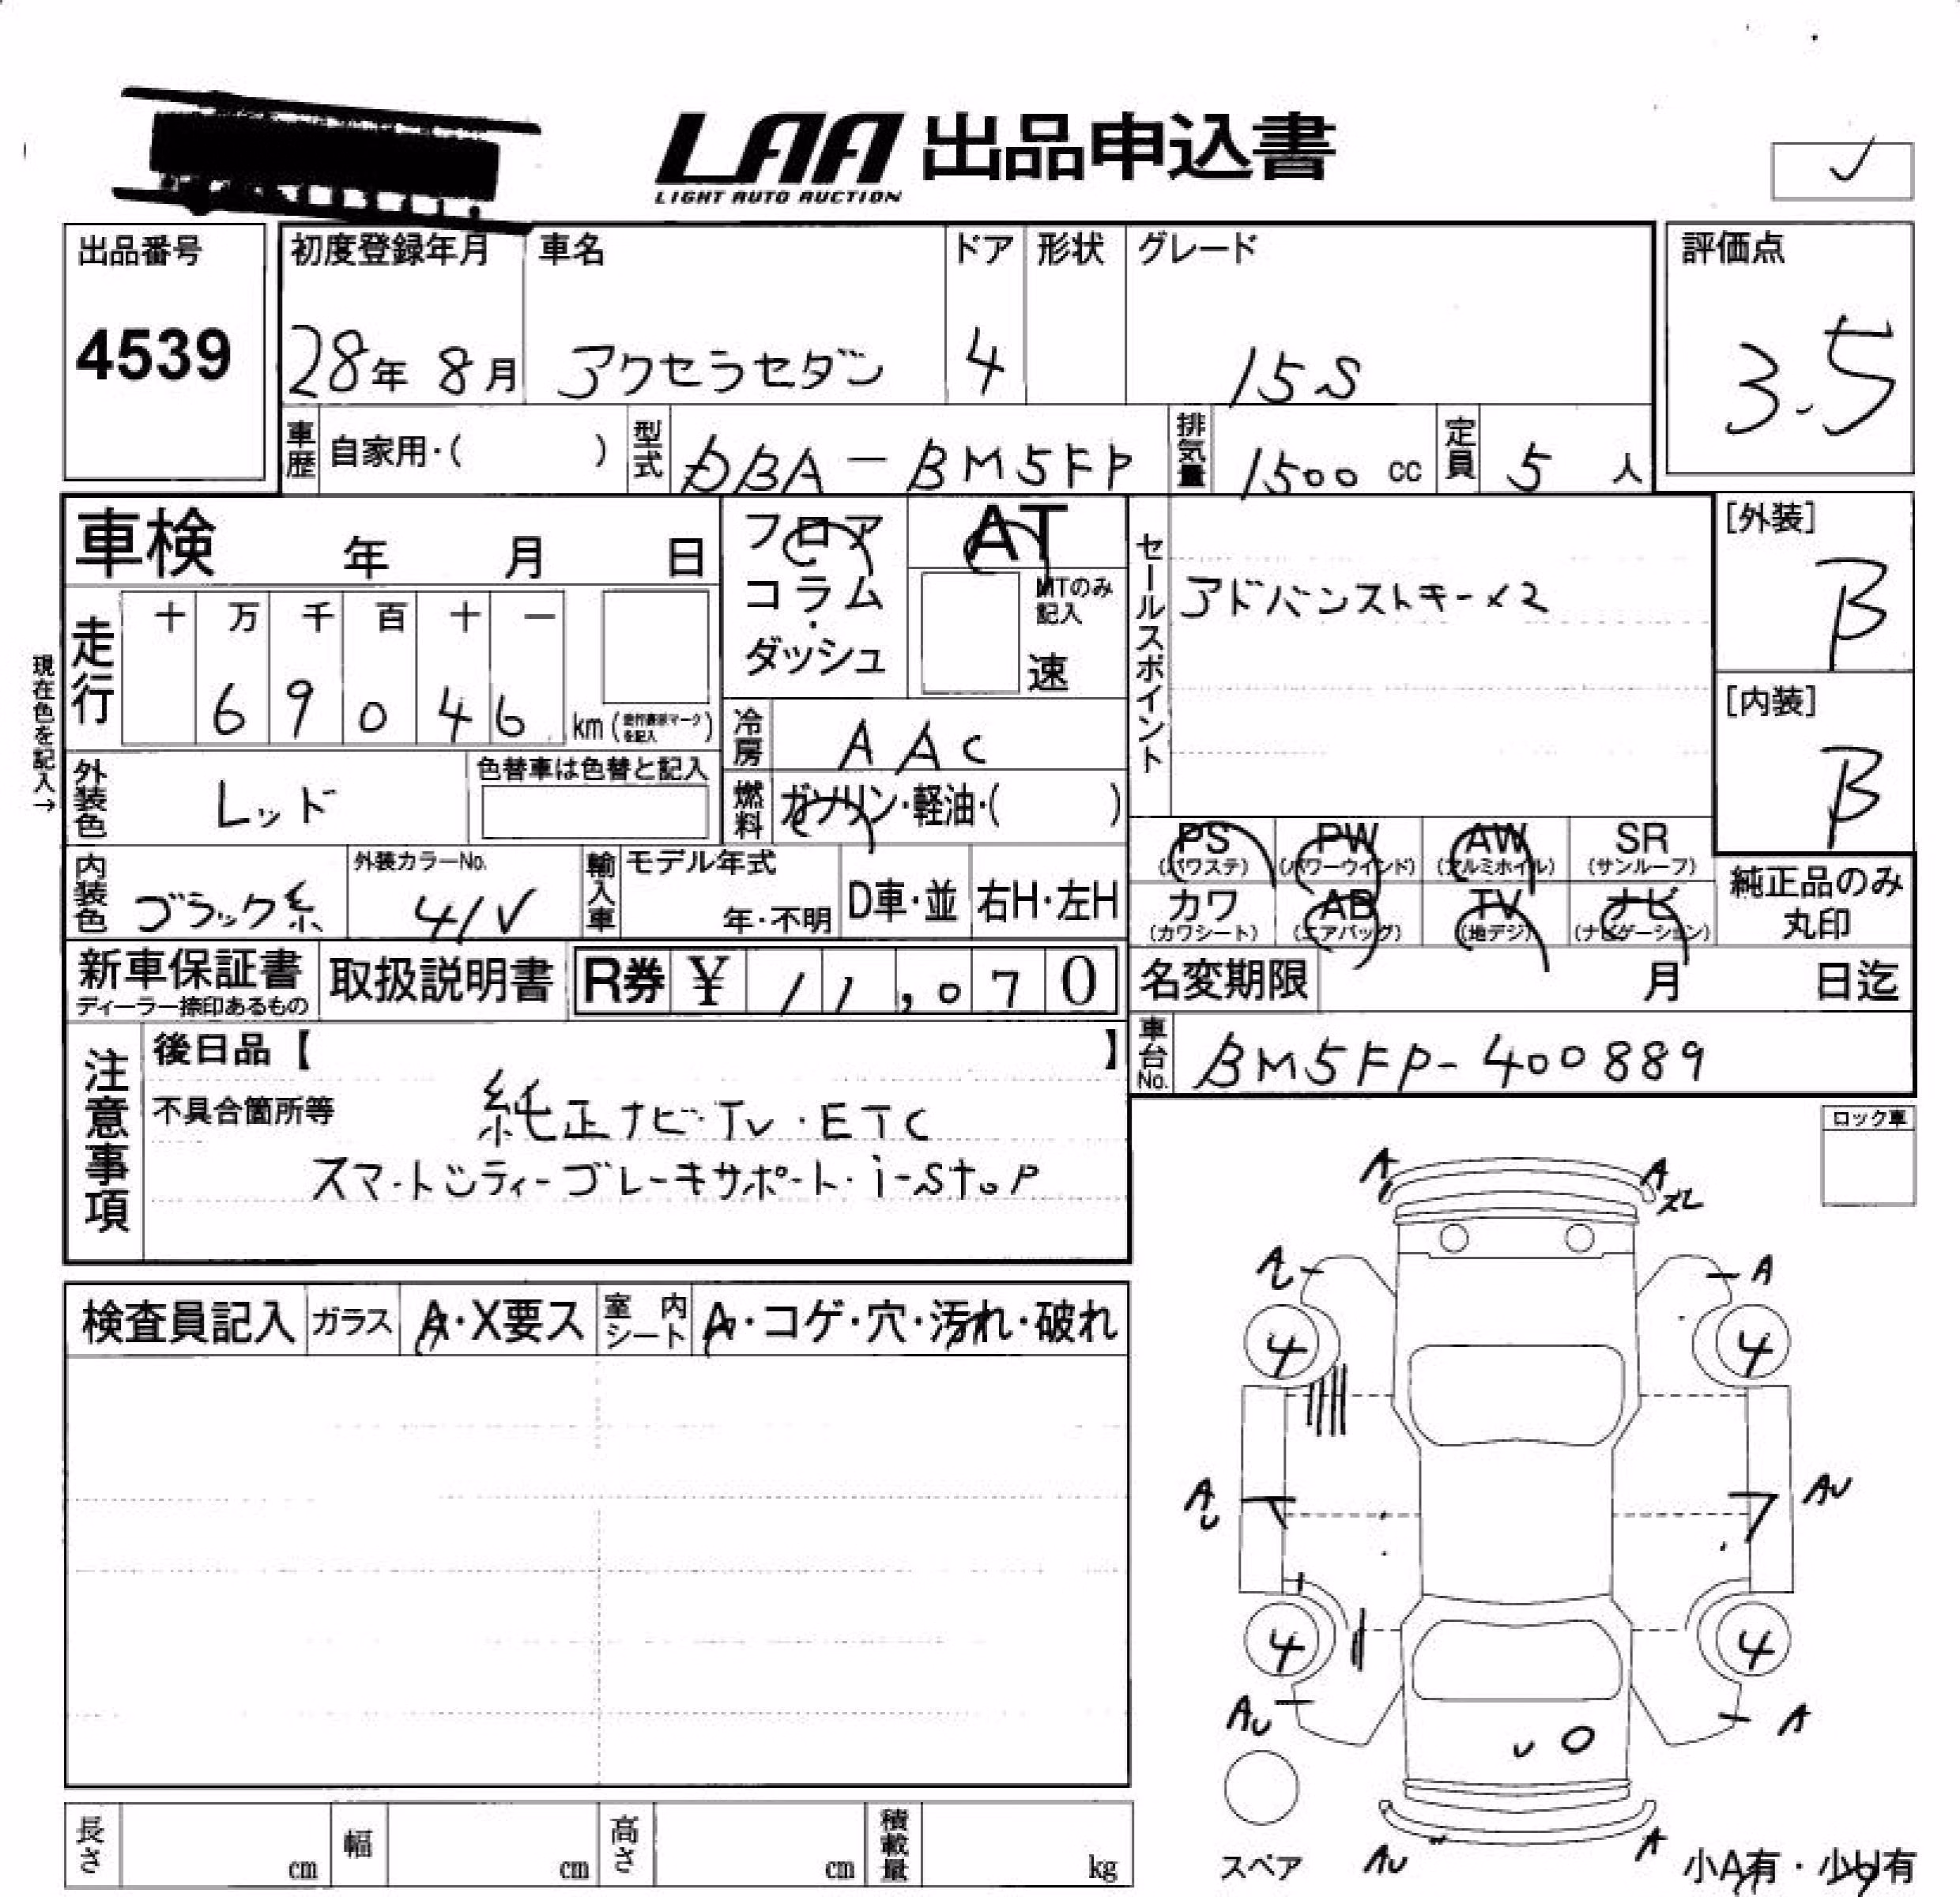 LAA 出品申込書
LIGHT AUTO AUCTION
✓
出品番号
4539
初度登録年月
28年 8月
車名
アクセラセダン
ドア
4
形状
グレード
15S
評価点
3.5
車歴 自家用・( )
型式 DBA-BM5FP
排気量 1500 cc
定員 5 人
車検 年 月 日
フロア・コラム・ダッシュ
AT
MTのみ記入
速
セールスポイント
アドバンストキー×2
[外装]
B
[内装]
B
現在色を記入→
走行
十 万 千 百 十 一
6 9 0 4 6 km
冷房 AAC
外装色 レッド
色替車は色替と記入
燃料 ガソリン・軽油・( )
PS (パワステ) PW (パワーウインド) AW (アルミホイル) SR (サンルーフ)
カワ (カワシート) AB (エアバッグ) TV (地デジ) ナビ (ナビゲーション)
純正品のみ丸印
内装色 ブラック系
外装カラーNo. 41V
輸入車 モデル年式 年・不明 D車・並 右H・左H
新車保証書
ディーラー捺印あるもの
取扱説明書
R券 ¥ 11,070
名変期限 月 日迄
車台No. BM5FP-400889
注意事項
後日品【 】
不具合箇所等
純正ナビ・TV・ETC
スマートシティーブレーキサポート・i-stop
ロック車
検査員記入 ガラス A・X要ス 室内シート A・コゲ・穴・汚れ・破れ
A A
A
4 4
AU AU
4 4
AU A
U
AU A
スペア
小A有・少U有
長さ cm 幅 cm 高さ cm 積載量 kg